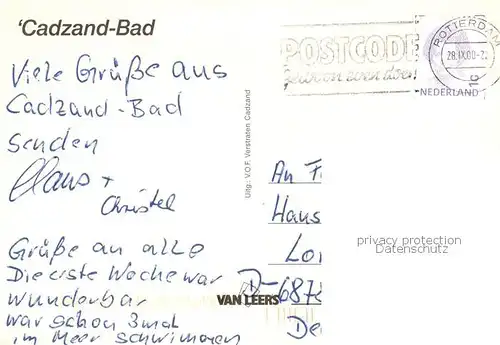 'Cadzand-Bad
Viele Grüße aus
Cadzand-Bad
senden
Klaus +
Christel
Grüße an alle
Die erste Woche war
wunderbar
war schon 3mal
im Meer schwimmen
Uitg.: V.O.F. Verstraten Cadzand
VAN LEERS
POSTCODE
gewoon even doen
ROTTERDAM
28.IX.00-
NEDERLAND
An F
Haus
Lo
D-687
De
privacy protection
Datenschutz